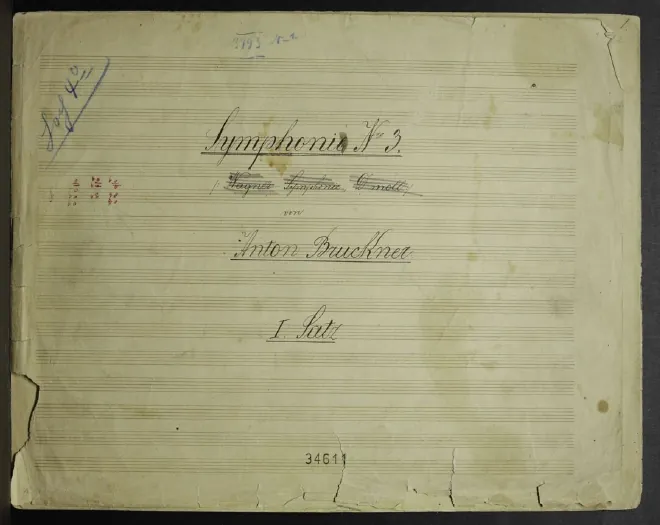 Symphonie No 3.
(Wagner Symphonie, D moll)
von
Anton Bruckner
I. Satz
34611